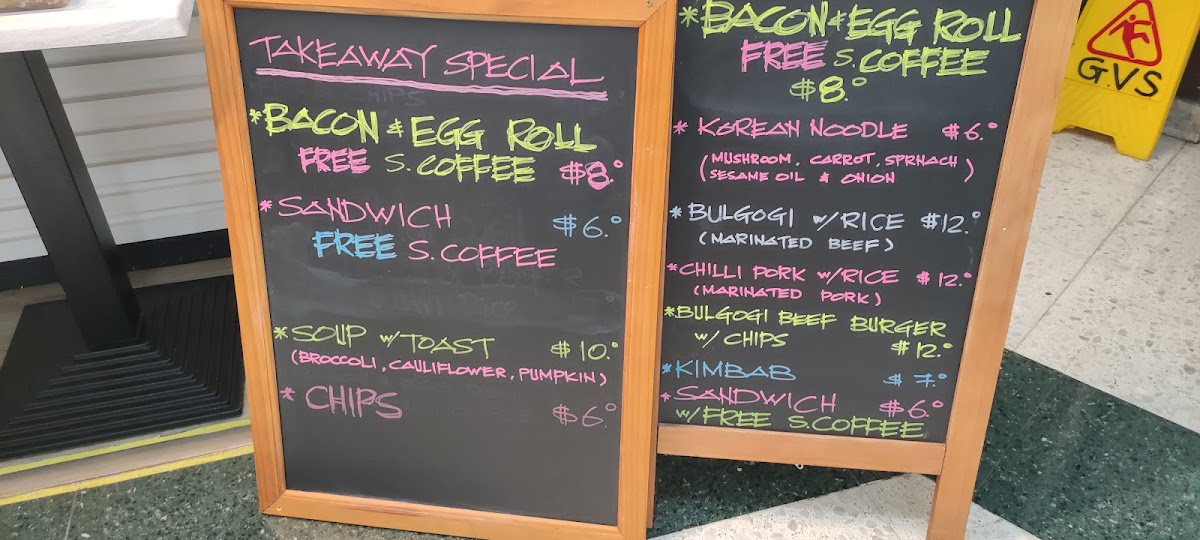 TAKEAWAY SPECIAL
* BACON & EGG ROLL
FREE S. COFFEE $8.0
* SANDWICH $6.0
FREE S. COFFEE
* SOUP w/ TOAST $10.0
(BROCCOLI, CAULIFLOWER, PUMPKIN)
* CHIPS $6.0
* BACON & EGG ROLL
FREE S. COFFEE
$8.0
* KOREAN NOODLE $6.0
(MUSHROOM, CARROT, SPRNACH
SESAME OIL & ONION)
* BULGOGI w/ RICE $12.0
(MARINATED BEEF)
* CHILLI PORK w/ RICE $12.0
(MARINATED PORK)
* BULGOGI BEEF BURGER
w/ CHIPS $12.0
* KIMBAB $7.0
* SANDWICH $6.0
w/ FREE S. COFFEE
G.V.S